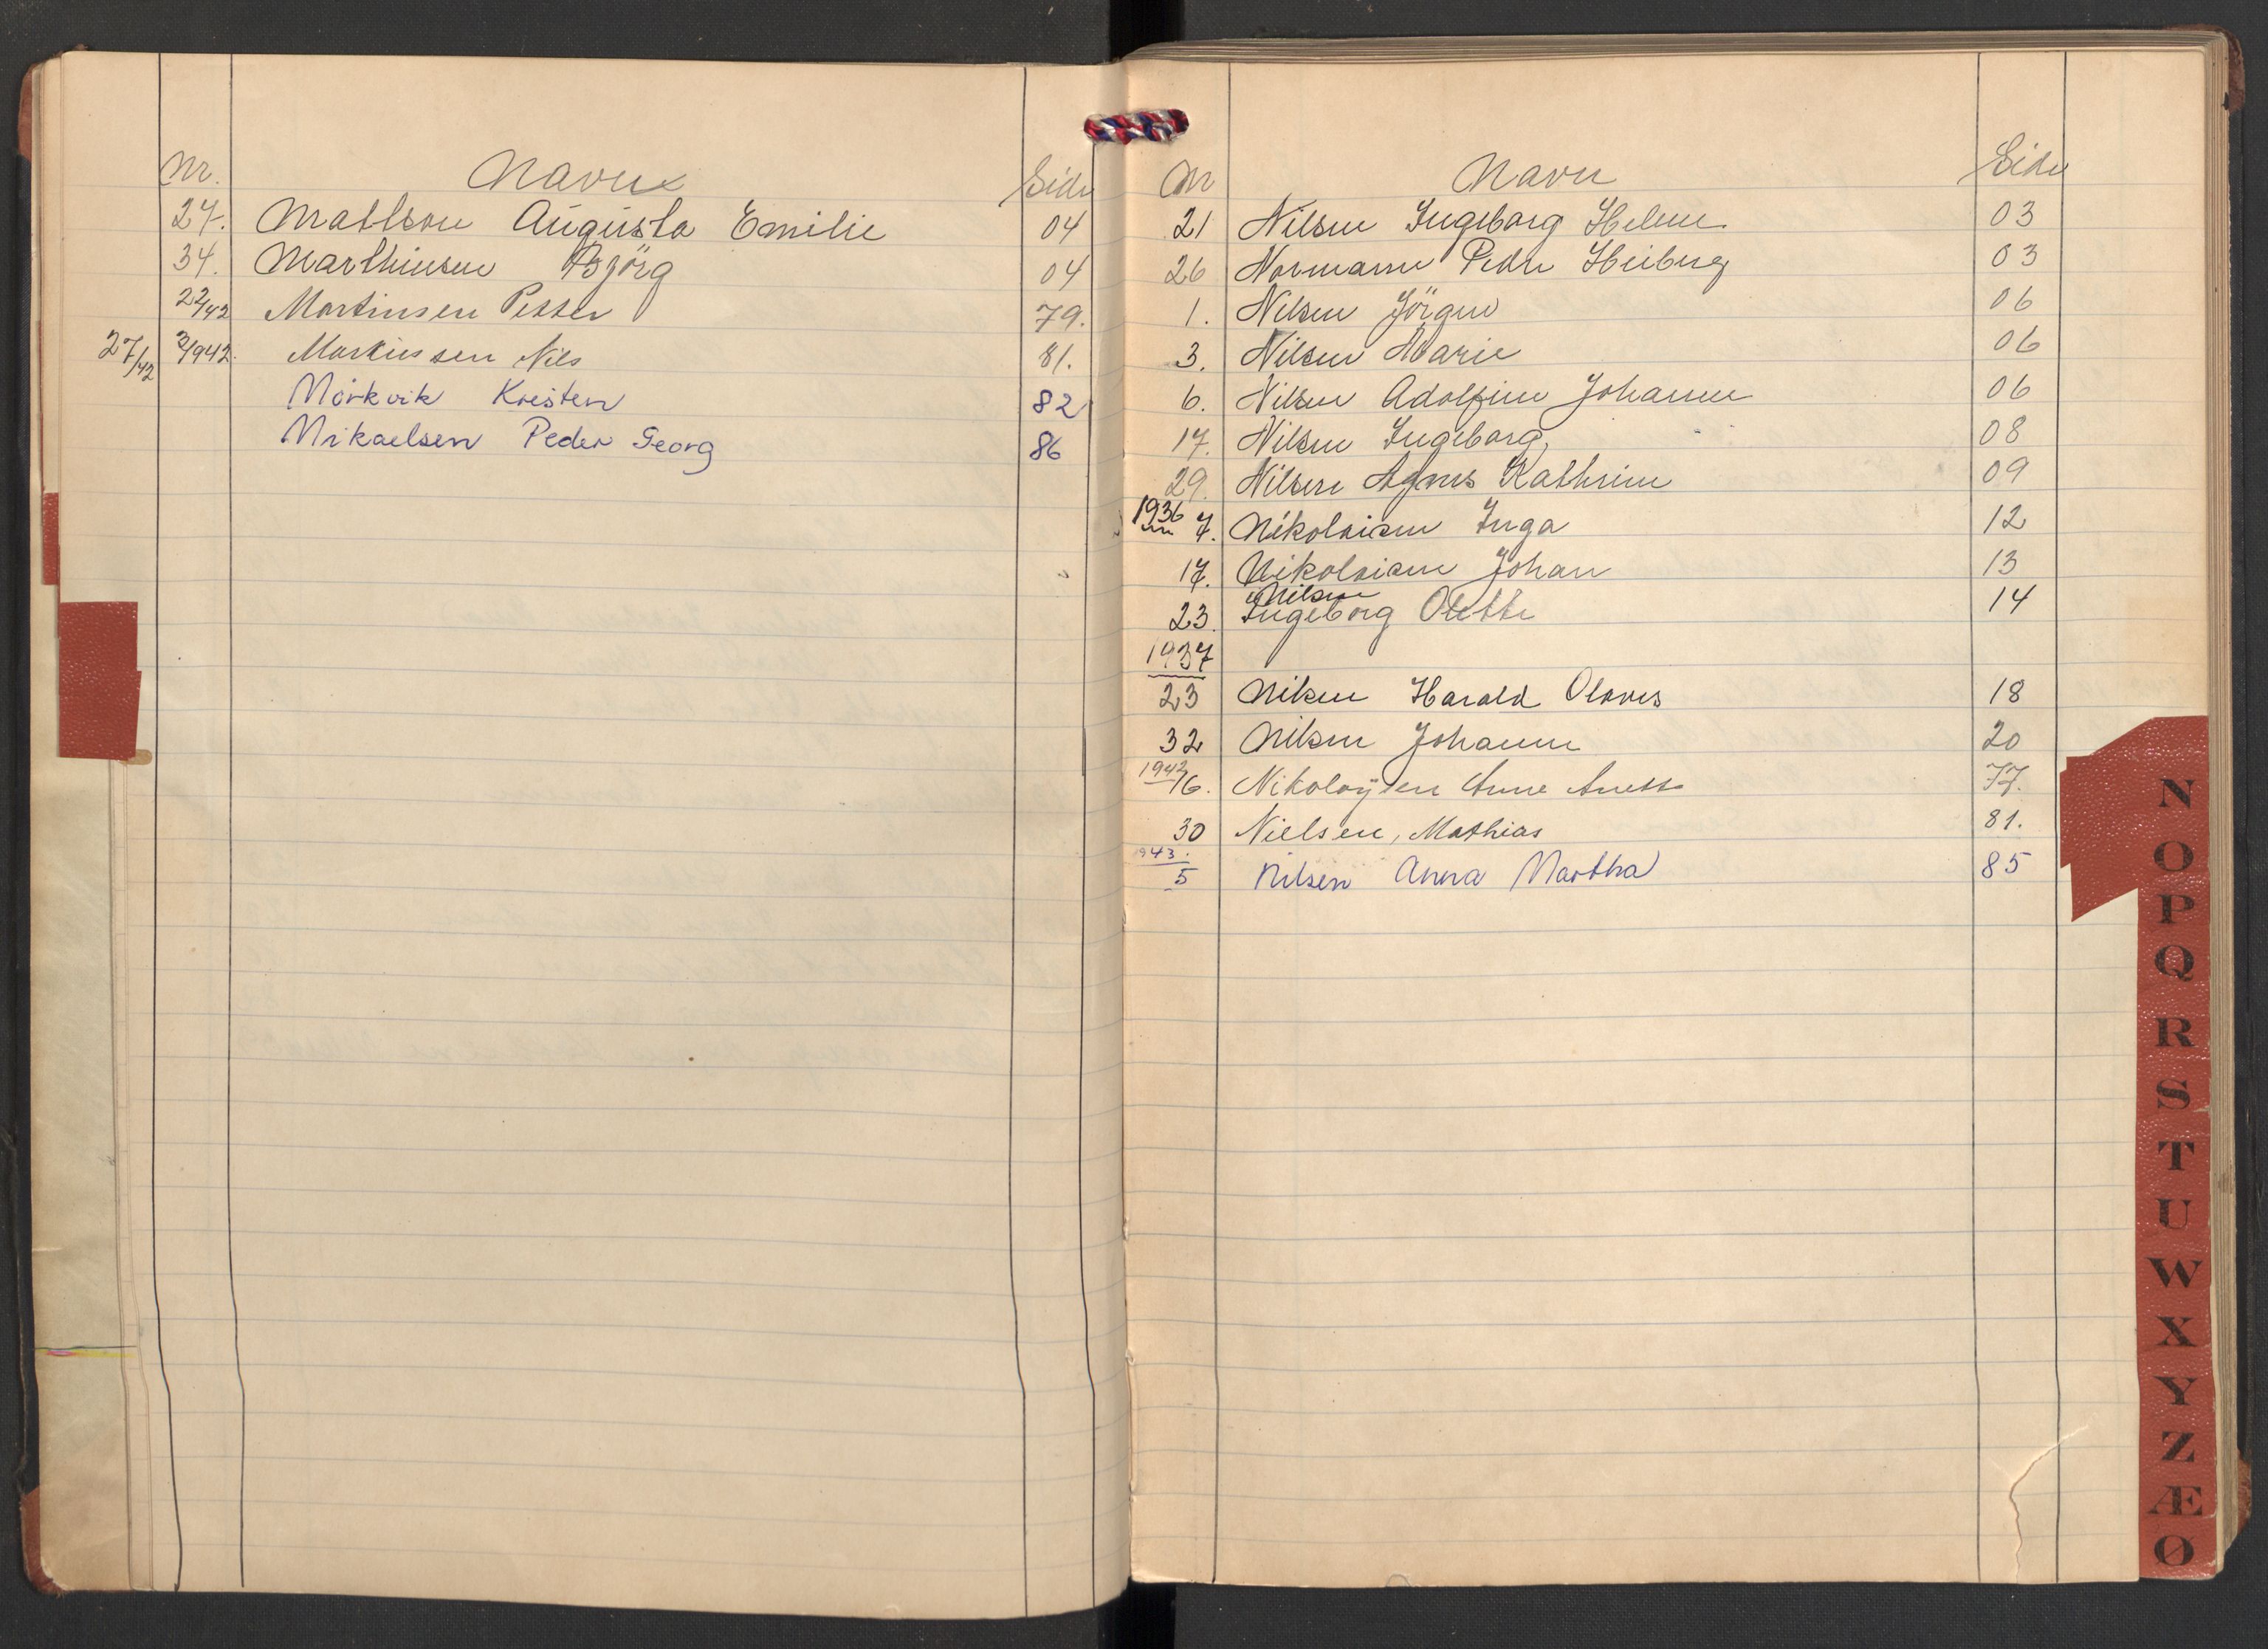 Nr. Navn Side
27. Mathson Augusta Emilie 04
34. Marthinsen Björg 04
22/42 Martinsen Petter 79.
27/42 3/1942. Markussen Nils 81.
Mörkvik Kristen 82
Mikaelsen Peder Georg 86
Nr Navn Side
21 Nilsen Ingeborg Helene 03
26 Normann Peder Heiberg 03
1. Nilsen Jörgen 06
3. Nilsen Marie 06
6. Nilsen Adolfine Johanne 06
17. Nilsen Ingeborg 08
29. Nilsen Agnes Kathrine 09
1936 7. Nikolaisen Inga 12
17. Nikolaisen Johan 13
Nilsen
23. Ingeborg Olette 14
1937
23 Nilsen Harald Olaves 18
32 Nilsen Johanne 20
1942/6. Nikolaÿsen Anne Anette 77.
30 Nielsen, Mathias 81.
1943.
5 Nilsen Anna Martha 85
N
O
P
Q
R
S
T
U
W
X
Y
Z
Æ
Ø